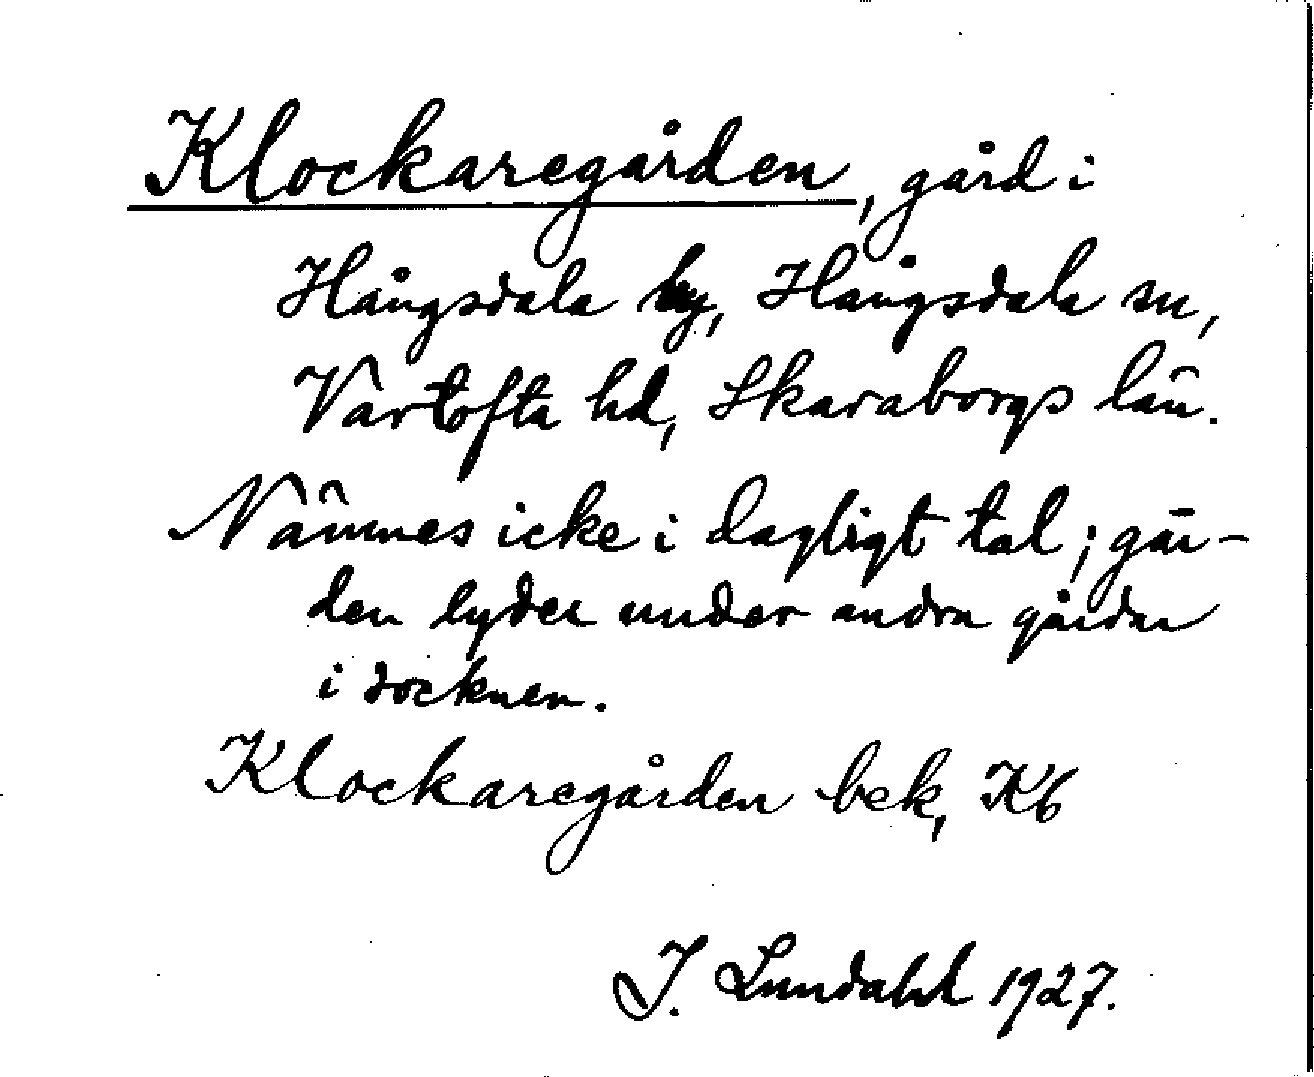 Klockaregården, gård i
Hångsdala by, Hångsdala sn,
Vartofta hd, Skaraborgs län.
Nämnes icke i dagligt tal; går-
den lyder under andra gårdar
i socknen.
Klockaregården bek, K6
I. Lundahl 1927.